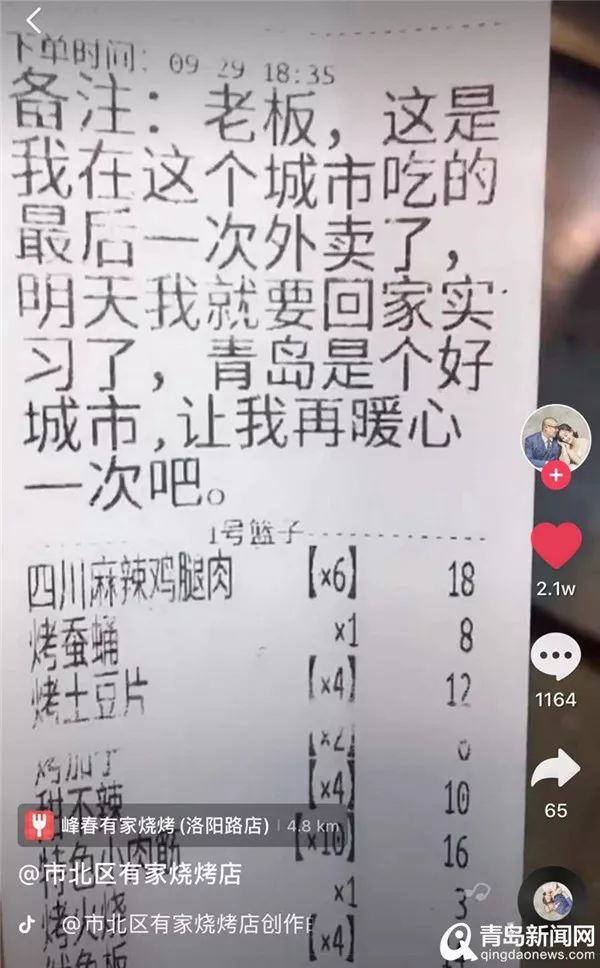 下单时间: 09-29 18:35
备注: 老板, 这是
我在这个城市吃的
最后一次外卖了,
明天我就要回家实
习了, 青岛是个好
城市,让我再暖心
一次吧。
1号篮子
四川麻辣鸡腿肉 【x6】 18
烤蚕蛹 x1 8
烤土豆片 【x4】 12
【x2】
甜不辣 【x4】 10
【x10】 16
烤火烧 x1 3
【x4】
峰春有家烧烤 (洛阳路店) 4.8 km
@市北区有家烧烤店
@市北区有家烧烤店创作的
2.1w
1164
65
青岛新闻网
qingdaonews.com